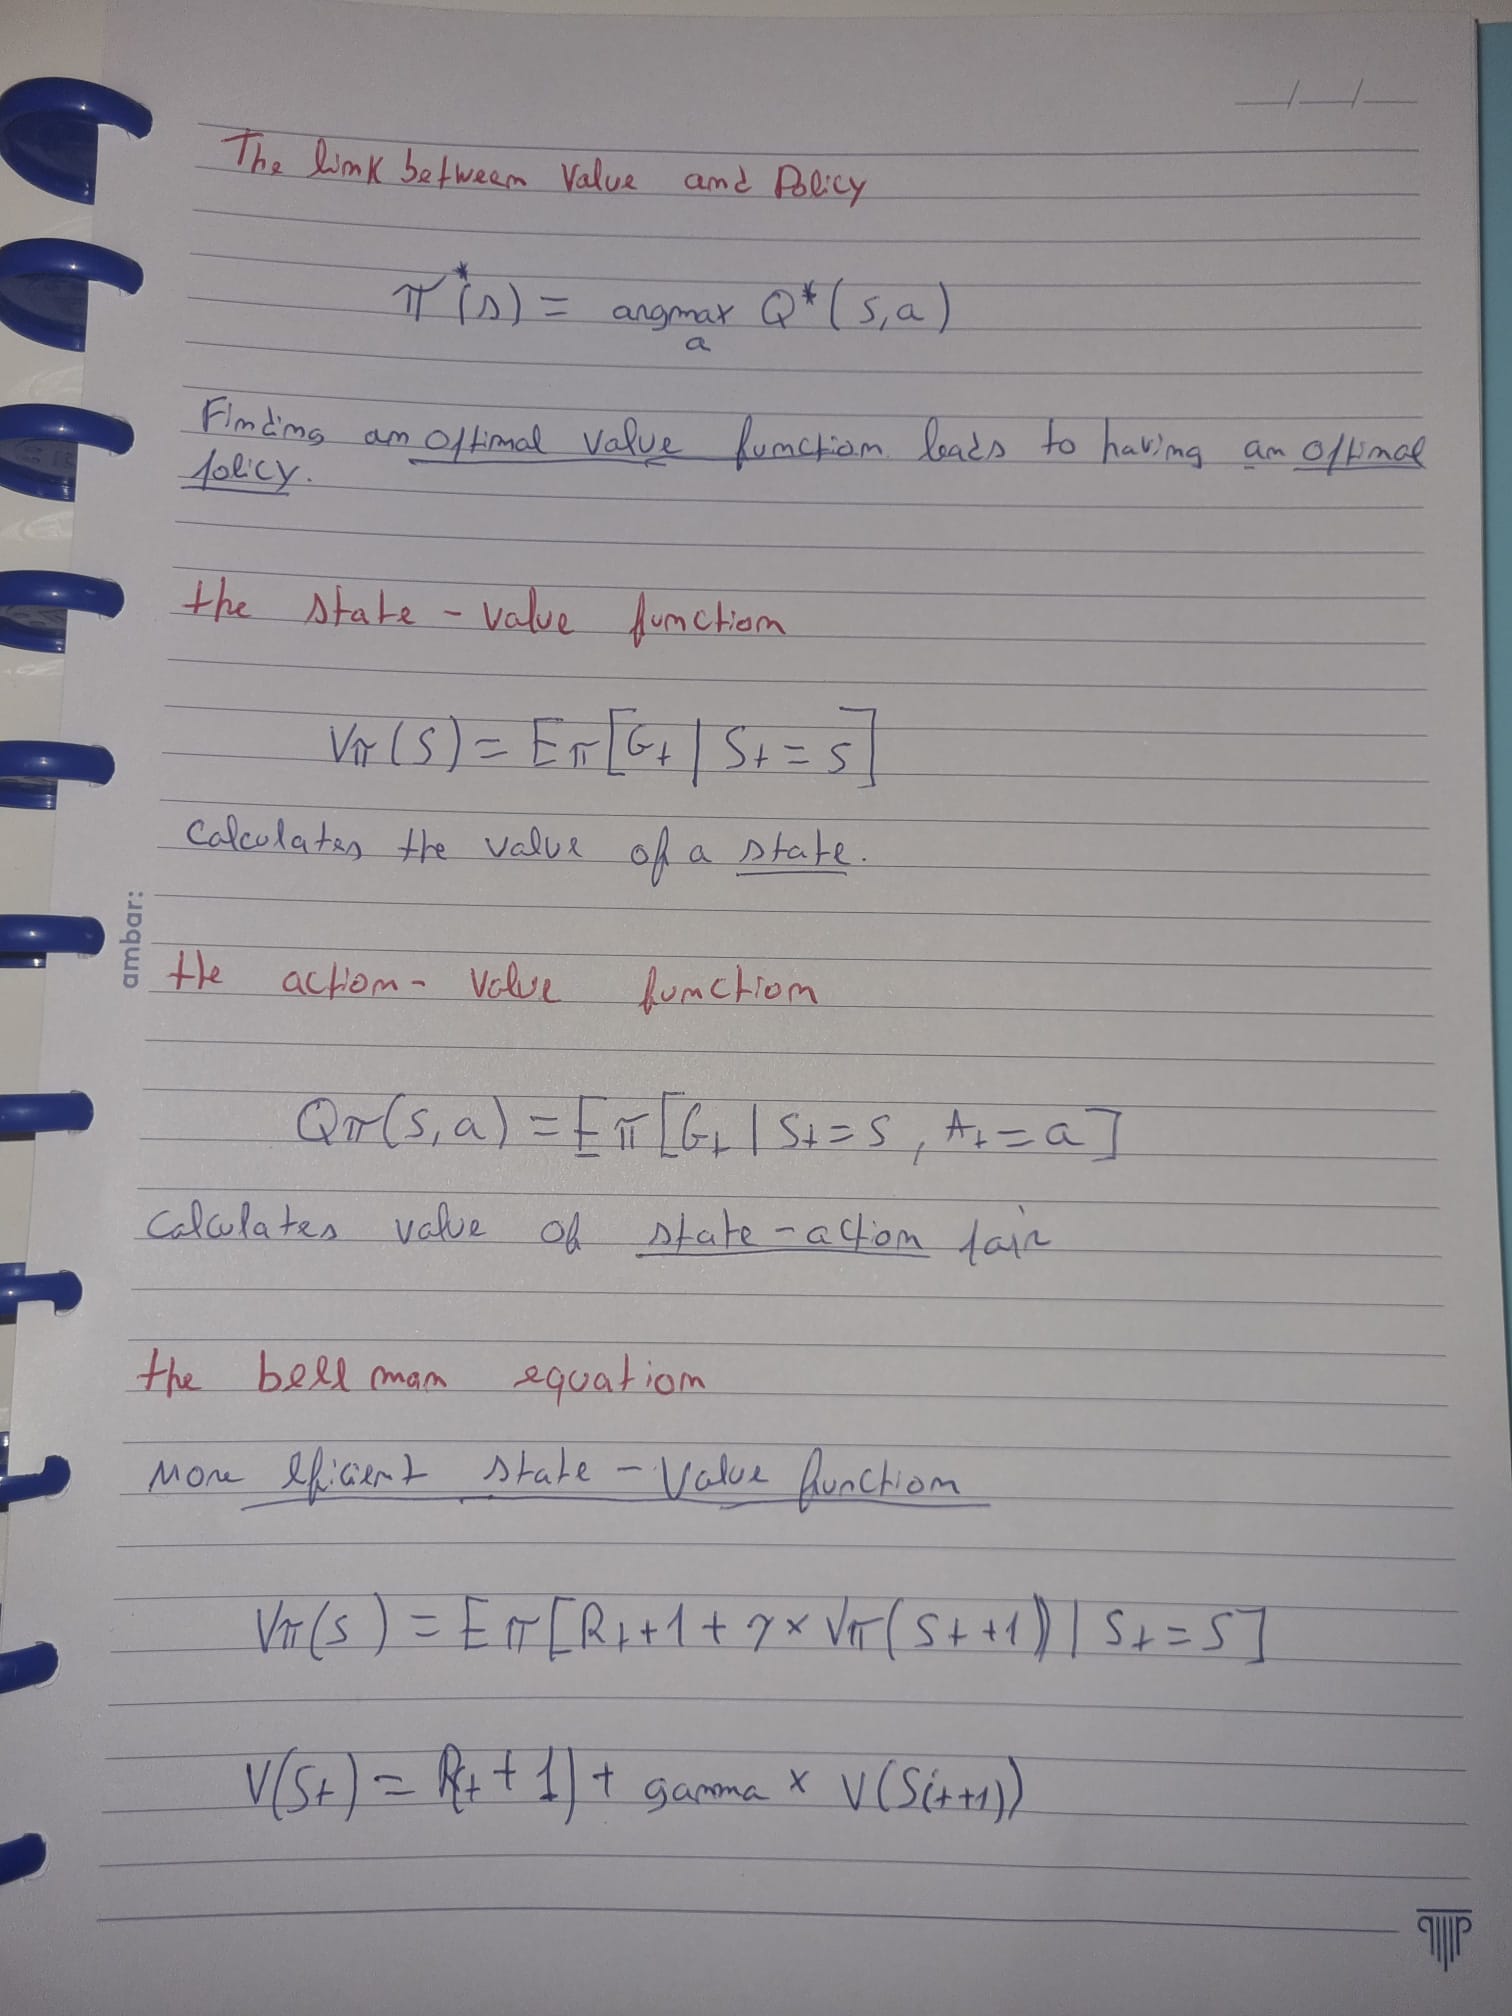 The link between Value and Policy
π*(s) = argmax Q*(s,a)
a
Finding an optimal value function leads to having an optimal
policy.
the state - value function
Vπ(s) = Eπ[Gt | St = s]
calculates the value of a state.
the action - value function
Qπ(s,a) = Eπ[Gt | St = s, At = a]
calculates value of state - action pair
the bell man equation
More eficient state - Value function
Vπ(s) = Eπ[Rt+1 + γ × Vπ(St+1)) | St = S]
V(St) = Rt + 1) + gamma × V(S(t+1))
ambar: